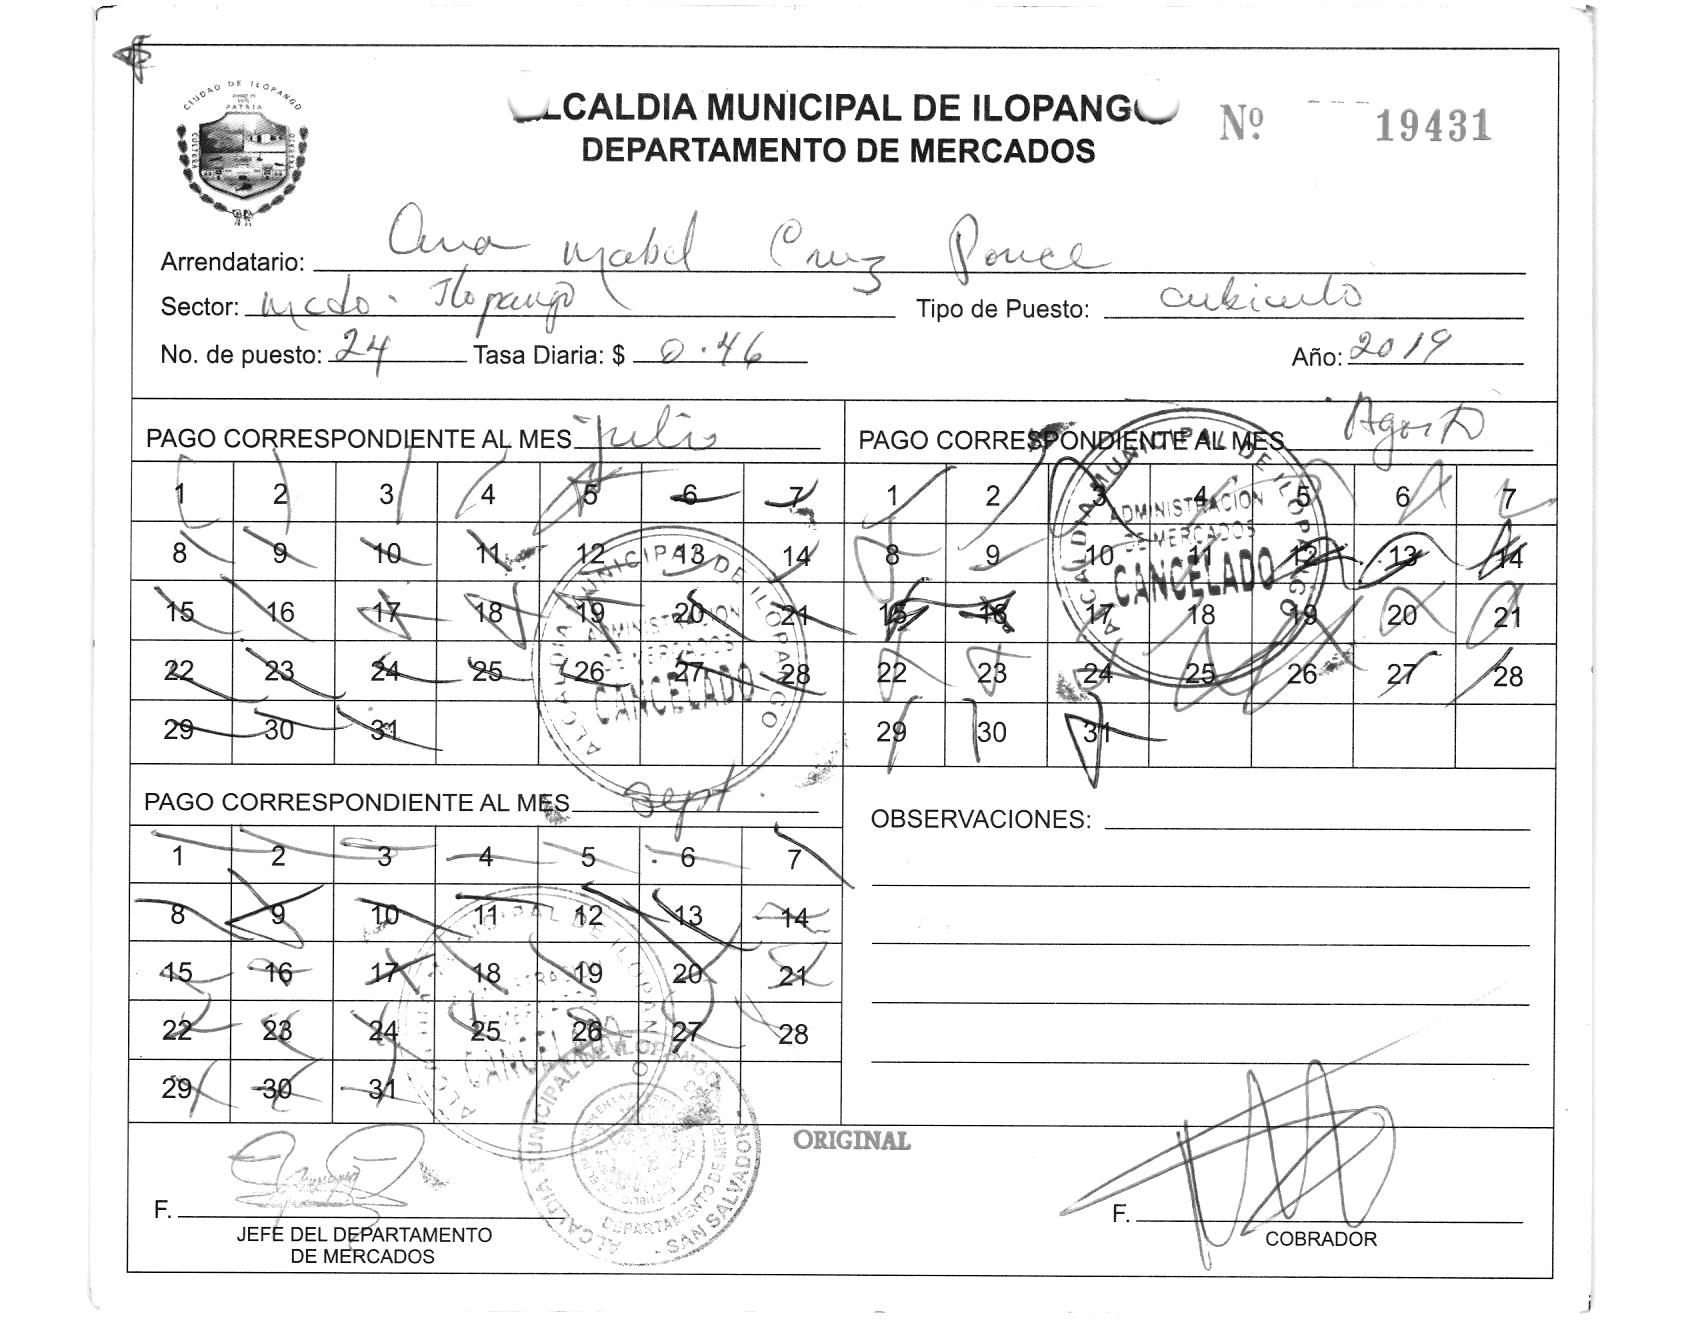 CIUDAD DE ILOPANGO
PATRIA
CULTURA
ALCALDIA MUNICIPAL DE ILOPANGO
DEPARTAMENTO DE MERCADOS
Nº 19431
Arrendatario: Ana Mabel Cruz Ponce
Sector: Mcdo. Ilopango Tipo de Puesto: cubiculo
No. de puesto: 24 Tasa Diaria: $ 0.46 Año: 2019
PAGO CORRESPONDIENTE AL MES Julio
1 2 3 4 5 6 7
8 9 10 11 12 13 14
15 16 17 18 19 20 21
22 23 24 25 26 27 28
29 30 31
ALCALDIA MUNICIPAL DE ILOPANGO
ADMINISTRACION
DE MERCADOS
CANCELADO
PAGO CORRESPONDIENTE AL MES Agosto
1 2 3 4 5 6 7
8 9 10 11 12 13 14
15 16 17 18 19 20 21
22 23 24 25 26 27 28
29 30 31
ALCALDIA MUNICIPAL DE ILOPANGO
ADMINISTRACION
DE MERCADOS
CANCELADO
PAGO CORRESPONDIENTE AL MES Sept.
1 2 3 4 5 6 7
8 9 10 11 12 13 14
15 16 17 18 19 20 21
22 23 24 25 26 27 28
29 30 31
CANCELADO
OBSERVACIONES:
ALCALDIA MUNICIPAL DE ILOPANGO
DEPARTAMENTO DE MERCADOS
SAN SALVADOR
ORIGINAL
F.
JEFE DEL DEPARTAMENTO
DE MERCADOS
F.
COBRADOR